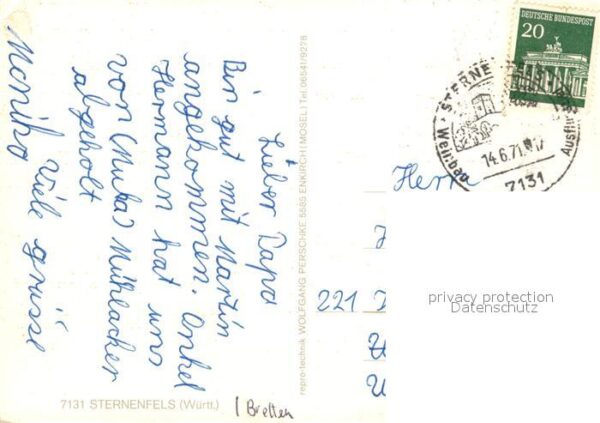 Lieber Papa
Bin gut mit Martin
angekommen. Onkel
Hermann hat uns
von (Muba) Mühlacker
abgeholt
Viele grüsse
Monika
repro-technik WOLFGANG PERSCHKE 5585 ENKIRCH (MOSEL) Tel. 06541/9278
7131 STERNENFELS (Württ.)
/ Bretten
DEUTSCHE BUNDESPOST
20
STERNE
14.6.71
17
7131
Ausfl
Herrn
221
privacy protection
Datenschutz